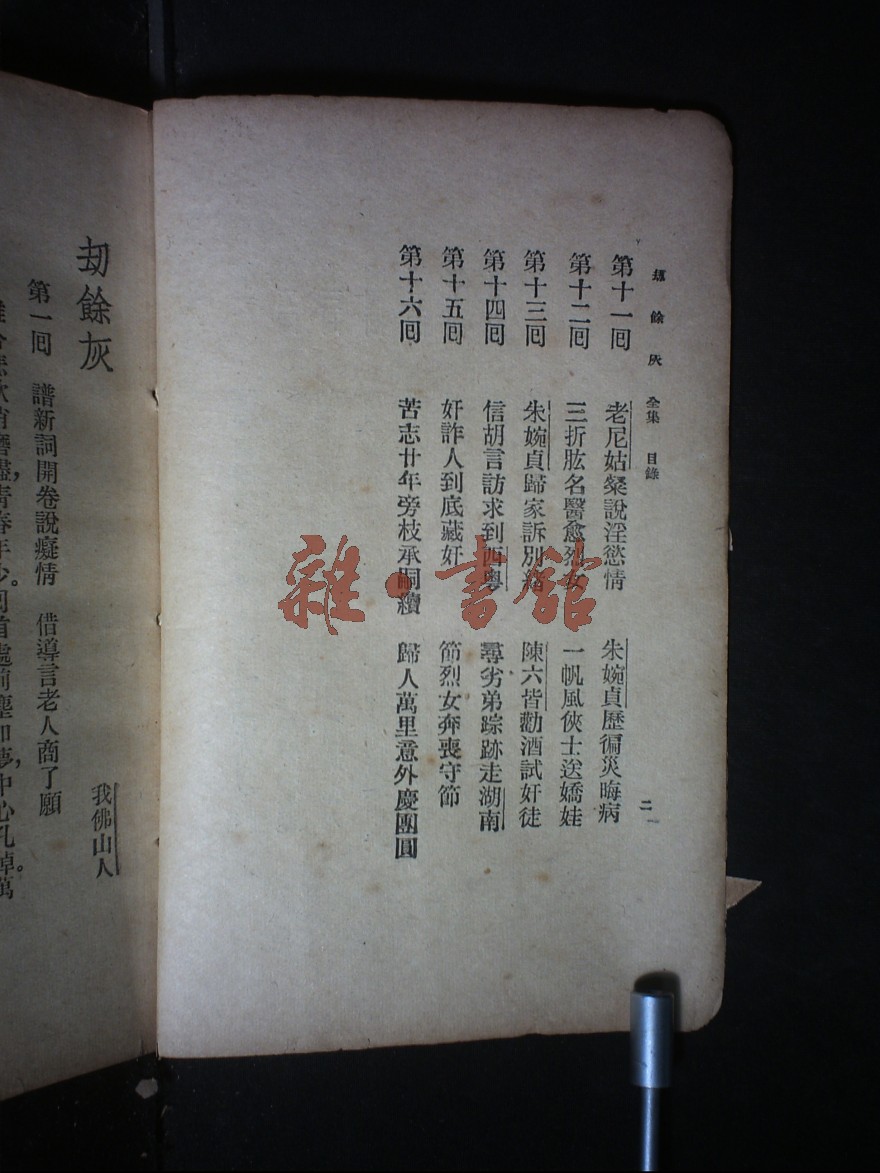 劫餘灰 全集 目錄 二
第十一回 老尼姑粲說淫慾情 朱婉貞歷徧災晦病
第十二回 三折肱名醫愈烈女 一帆風俠士送嬌娃
第十三回 朱婉貞歸家訴別緒 陳六皆勸酒試奸徒
第十四回 信胡言訪求到西粵 尋劣弟踪跡走湖南
第十五回 奸詐人到底藏奸 節烈女奔喪守節
第十六回 苦志廿年旁枝承嗣續 歸人萬里意外慶團圓
雜書館
劫餘灰
我佛山人
第一回 譜新詞開卷說癡情 借導言老人商了願
青春年少。回首處前塵如夢,中心孔悼。萬